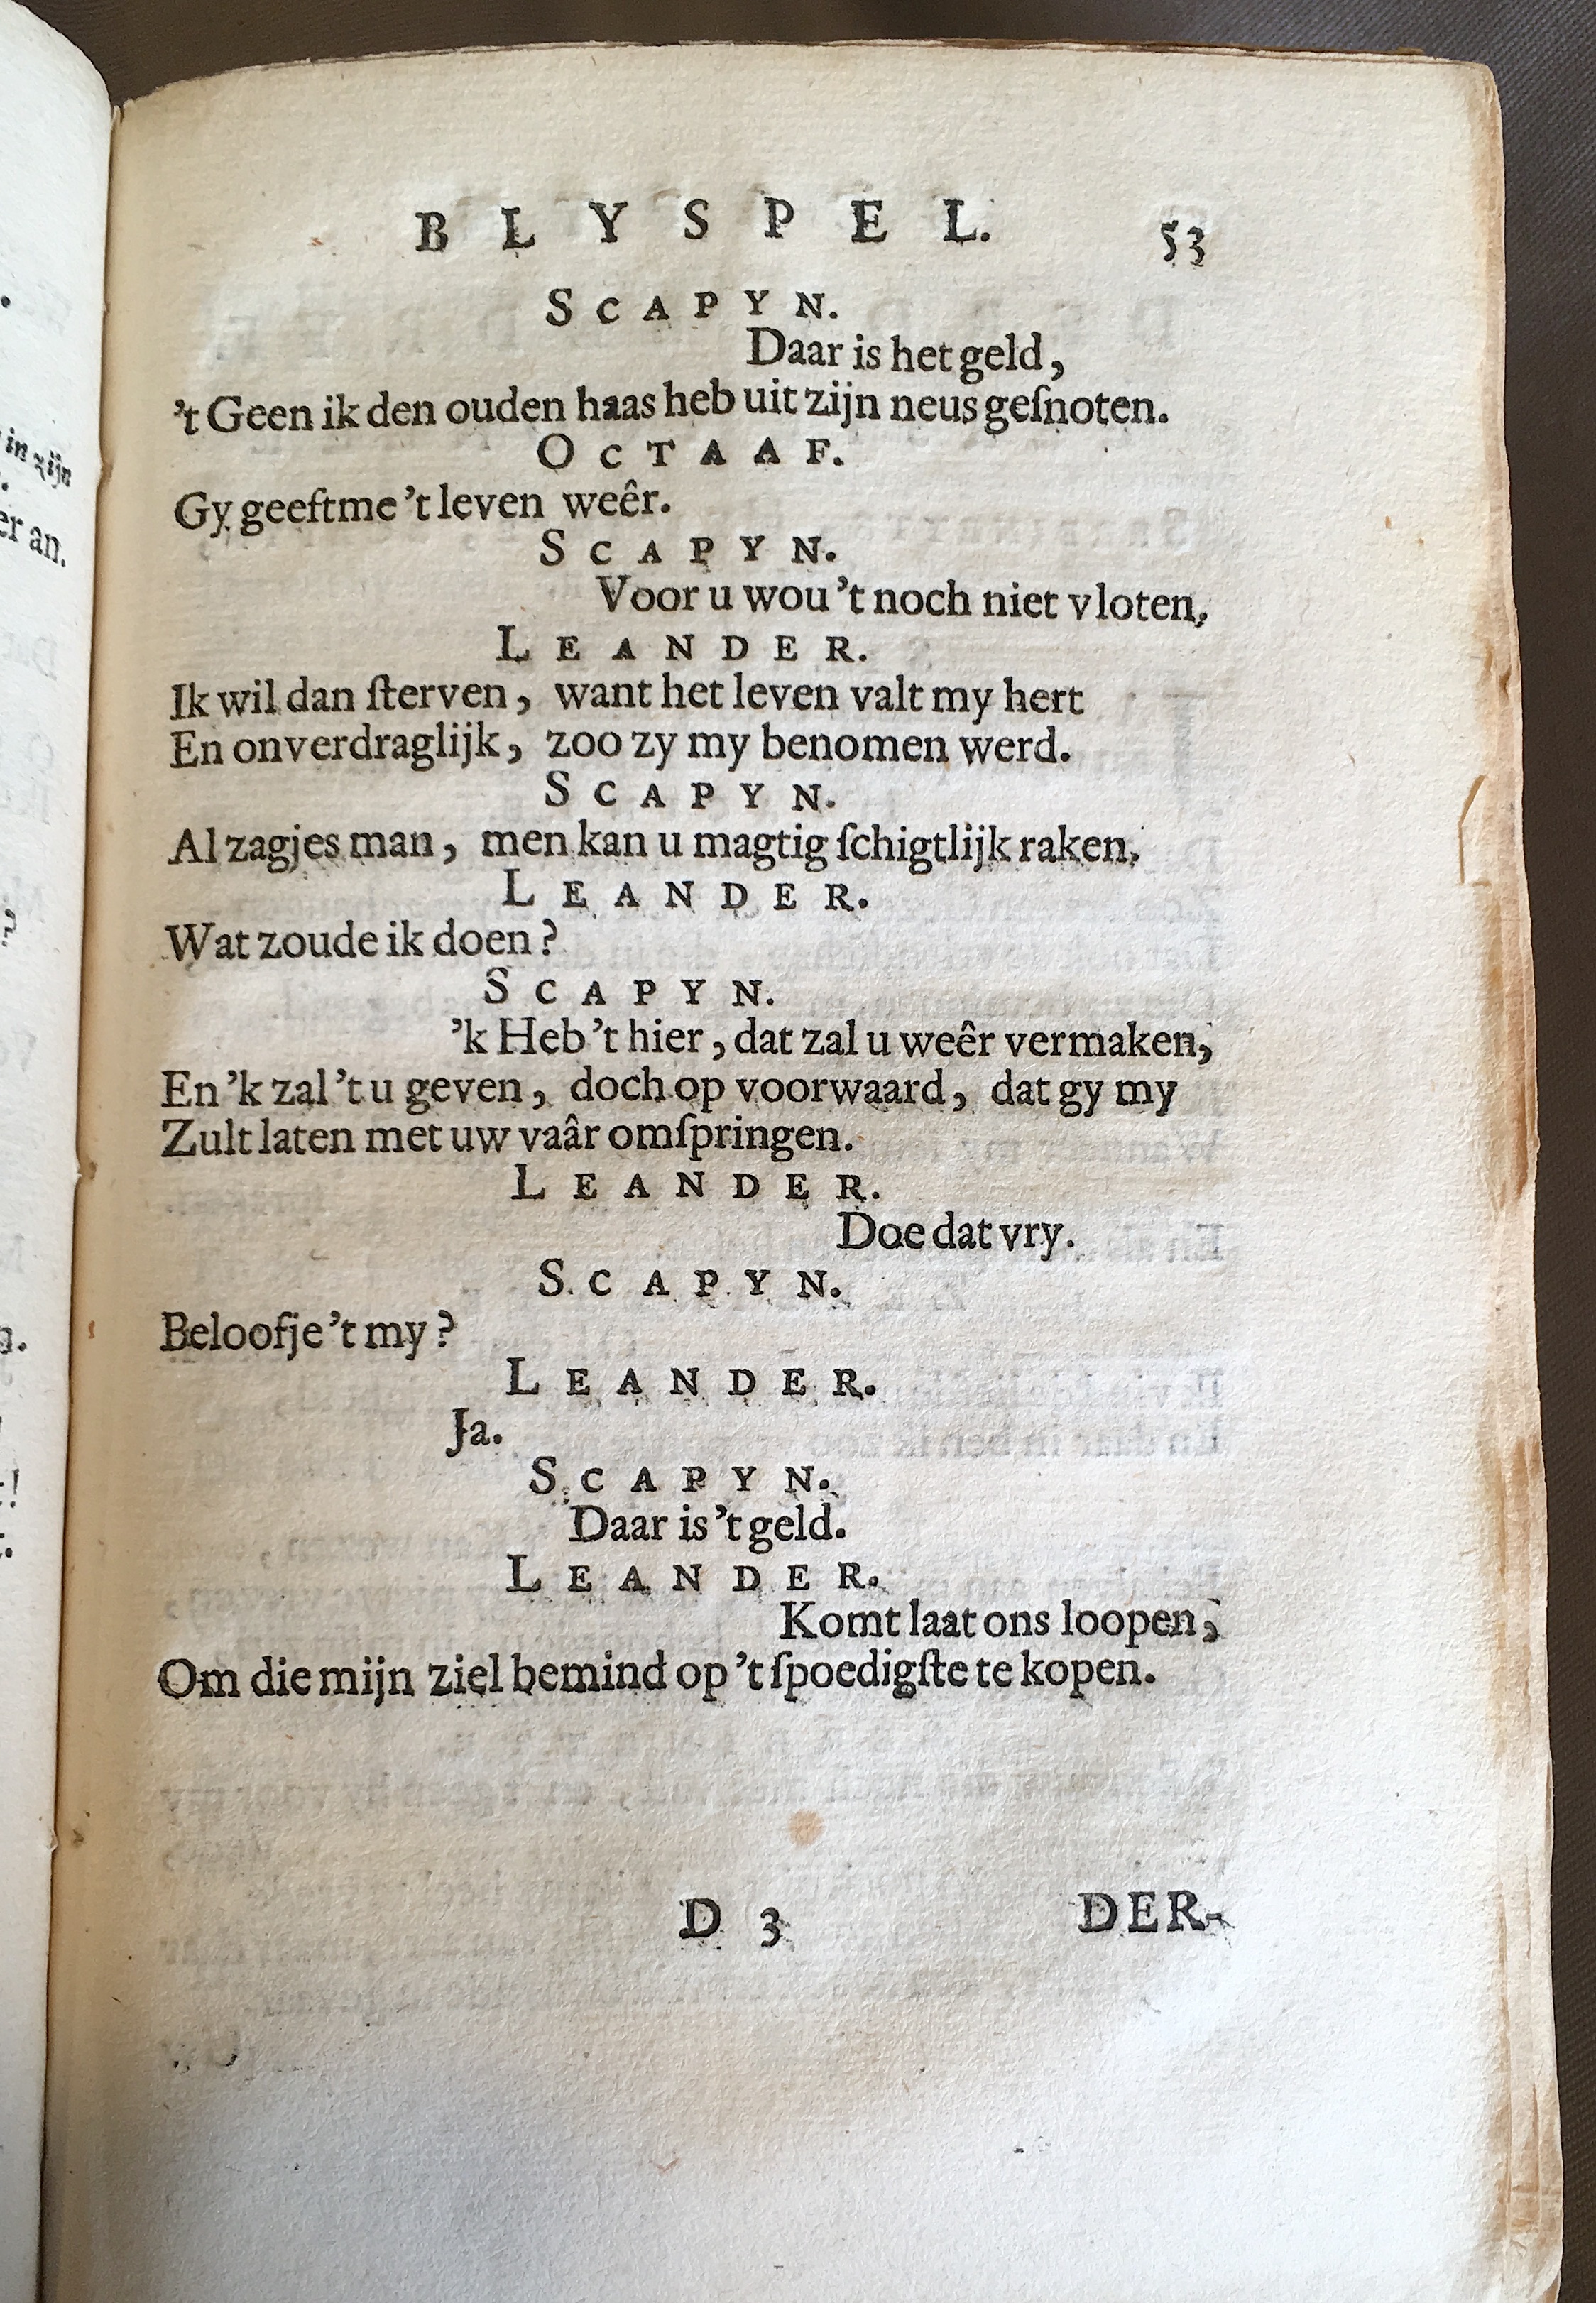 BLYSPEL. 53
SCAPYN.
Daar is het geld,
't Geen ik den ouden haas heb uit zijn neus geſnoten.
OCTAAF.
Gy geeftme 't leven weêr.
SCAPYN.
Voor u wou 't noch niet vloten,
LEANDER.
Ik wil dan ſterven, want het leven valt my hert
En onverdraglijk, zoo zy my benomen werd.
SCAPYN.
Al zagjes man, men kan u magtig ſchigtlijk raken.
LEANDER.
Wat zoude ik doen?
SCAPYN.
'k Heb 't hier, dat zal u weêr vermaken,
En 'k zal 't u geven, doch op voorwaard, dat gy my
Zult laten met uw vaâr omſpringen.
LEANDER.
Doe dat vry.
SCAPYN.
Beloofje 't my?
LEANDER.
Ja.
SCAPYN.
Daar is 't geld.
LEANDER.
Komt laat ons loopen,
Om die mijn ziel bemind op 't ſpoedigſte te kopen.
D 3 DER-
in zijn
er an.